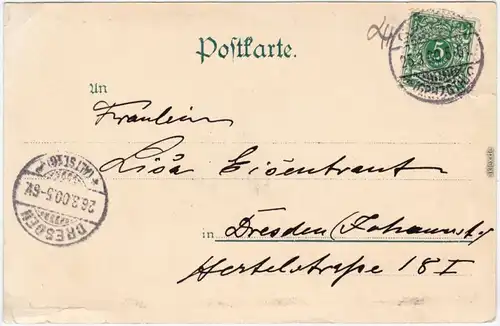 Postkarte.
5
An
Fräulein
Lisa Eisentraut
in Dresden (Johannst.
Hertelstraße 18 I
DRESDEN
26.3.00.5-6V.
* (ALTST.)